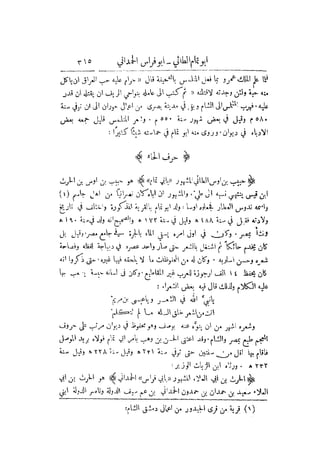 ابو تمام الطائي — ابو فراس الحمداني ٣١٥
فلما علم الملك عمرو بما فعل المتلمس بالصحيفة قال « حرام عليه حب العراق ان ياكل
منه حبة ولئن وجدته لاقتلنه » ثم كتب الى عماله بنواحي الريف ان يقتلوه ان قدر
عليه. فهرب المتلمس الى الشام ونزل في مدينة بصرى من اعمال حوران الى ان توفي سنة
٥٨٠ م وقيل في بعض شهور سنة ٥٥٠ م . وشعر المتلمس قليل جمعه بعض
الادباء في ديوان. وروى منه ابو تمام في حماسته شيئًا كثيرًا :
﴿ حرف الحاء ﴾
﴿ حبيب بن اوس الطائي المشهور « بابي تمام » ﴾ هو حبيب بن اوس بن الحارث
ابن قيس ينتهي نسبه الى طيء. والمشهور ان اباه كان نصرانيًا من اهل جاسم (١)
واسمه تدوس العطار فجعلوه اوسًا. ولد ابو تمام بالقرية المذكورة واختلف في تاريخ
ولادته فقيل في سنة ١٨٨ ه وقيل في سنة ١٧٢ ه والصحيح انه ولد في سنة ١٩٠ ه
ونشأ بمصر. وكان في اول امره يسقي الماء بالجرة في جامع مصر. وقيل بل
كان يخدم حائكًا ثم اشتغل بالشعر حتى صار واحد عصره في ديباجة لفظه وفصاحة
شعره وحسن اسلوبه . وكان له من المحفوظات ما لا يلحقه فيها غيره. حتى ذكروا انه
كان يحفظ ١٤ الف ارجوزة للعرب غير المقاطيع. وكان في لسانه حبسة بها
عليه الكلام ولذلك قال فيه بعض الشعراء :
يا نبي الله في الشعـر ويا عيسى بن مريم
انت من اشعر خلق الـله ما لم تتكلم
وشعره اشهر من ان ينوه عنه بوصف وهو محفوظ في ديوان مرتب على حروف
المعجم طبع بمصر والشام. وقد اعتنى الحسن بن وهب بامر ابي تمام فولاه بريد الموصل
فاقام بها اقل من سنتين حتى توفي سنة ٢٣١ ه وقيل سنة ٢٢٨ ه وقيل سنة
٢٣٢ ه . ورثاه ابن الزيات الوزير :
﴿ الحرث بن ابي العلاء المشهور « بابي فراس » الحمداني ﴾ هو الحرث بن ابي
العلاء سعيد بن حمدان بن حمدون الحمداني بن عم سيف الدولة وناصر الدولة ابني
(١) قرية من قرى الجيدور من اعمالي دمشق الشام: